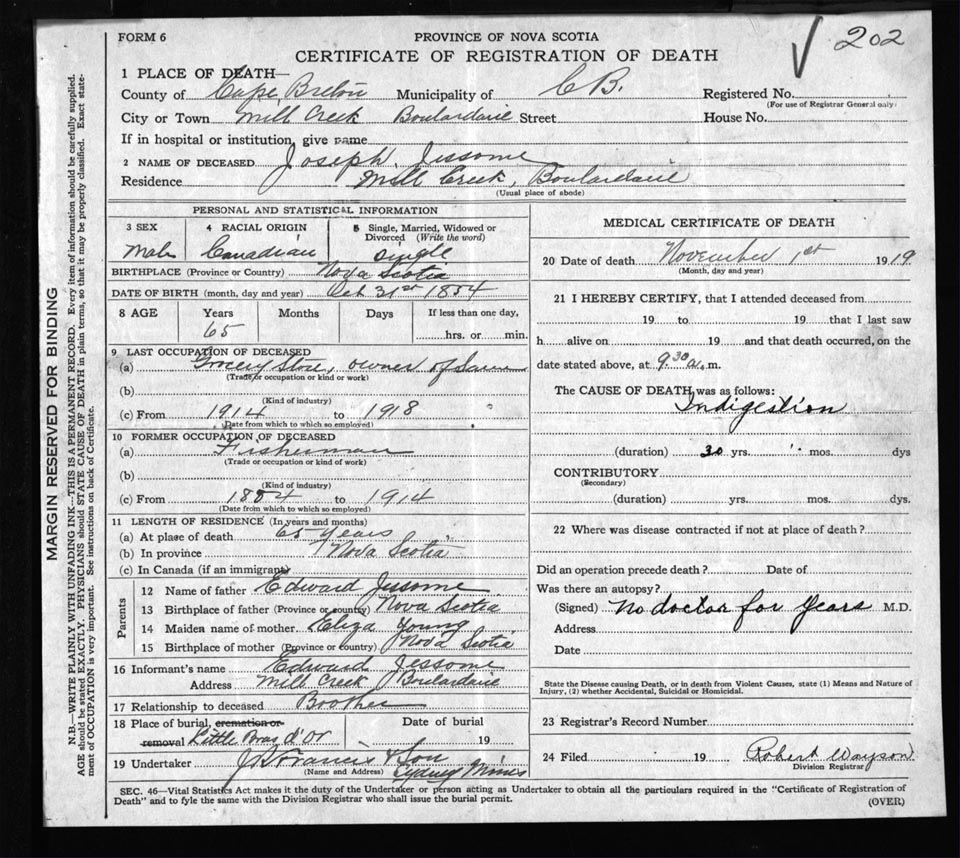 FORM 6
PROVINCE OF NOVA SCOTIA
202
CERTIFICATE OF REGISTRATION OF DEATH
1 PLACE OF DEATH—
County of Cape Breton Municipality of C B. Registered No.
(For use of Registrar General only)
City or Town Mill Creek Boulardarie Street House No.
If in hospital or institution, give name
2 NAME OF DECEASED Joseph Jessome
Residence Mill Creek, Boulardarie
(Usual place of abode)
PERSONAL AND STATISTICAL INFORMATION
3 SEX 4 RACIAL ORIGIN 5 Single, Married, Widowed or Divorced (Write the word)
Male Canadian Single
BIRTHPLACE (Province or Country) Nova Scotia
DATE OF BIRTH (month, day and year) Oct 31st 1854
8 AGE Years Months Days If less than one day,
65 hrs. or min.
9 LAST OCCUPATION OF DECEASED
(a) Grocery Store, owner of Same
(Trade or occupation or kind or work)
(b)
(Kind of industry)
(c) From 1914 to 1918
(Date from which to which so employed)
10 FORMER OCCUPATION OF DECEASED
(a) Fisherman
(Trade or occupation or kind of work)
(b)
(Kind of industry)
(c) From 1884 to 1914
(Date from which to which so employed)
11 LENGTH OF RESIDENCE (In years and months)
(a) At place of death 65 Years
(b) In province Nova Scotia
(c) In Canada (if an immigrant)
Parents
12 Name of father Edward Jessome
13 Birthplace of father (Province or country) Nova Scotia
14 Maiden name of mother Eliza Young
15 Birthplace of mother (Province or country) Nova Scotia
16 Informant's name Edward Jessome
Address Mill Creek Boulardarie
17 Relationship to deceased Brother
18 Place of burial, cremation or removal Little Bras d'Or Date of burial 19
19 Undertaker Francis & Son
(Name and Address) Sydney Mines
MEDICAL CERTIFICATE OF DEATH
20 Date of death November 1st 1919
(Month, day and year)
21 I HEREBY CERTIFY, that I attended deceased from
19 to 19 that I last saw
h alive on 19 and that death occurred, on the
date stated above, at 9.30 a.m.
The CAUSE OF DEATH was as follows:
Indigestion
(duration) 30 yrs. mos. dys
CONTRIBUTORY
(Secondary)
(duration) yrs. mos. dys.
22 Where was disease contracted if not at place of death?
Did an operation precede death? Date of
Was there an autopsy?
(Signed) No doctor for Years M.D.
Address
Date
State the Disease causing Death, or in death from Violent Causes, state (1) Means and Nature of
Injury, (2) whether Accidental, Suicidal or Homicidal.
23 Registrar's Record Number
24 Filed 19 Robert Wayson
Division Registrar
SEC. 46—Vital Statistics Act makes it the duty of the Undertaker or person acting as Undertaker to obtain all the particulars required in the "Certificate of Registration of
Death" and to fyle the same with the Division Registrar who shall issue the burial permit.
(OVER)
MARGIN RESERVED FOR BINDING
N.B.—WRITE PLAINLY WITH UNFADING INK—THIS IS A PERMANENT RECORD. Every item of information should be carefully supplied.
AGE should be stated EXACTLY. PHYSICIANS should STATE CAUSE OF DEATH in plain terms, so that it may be properly classified. Exact state-
ment of OCCUPATION is very important. See instructions on back of Certificate.